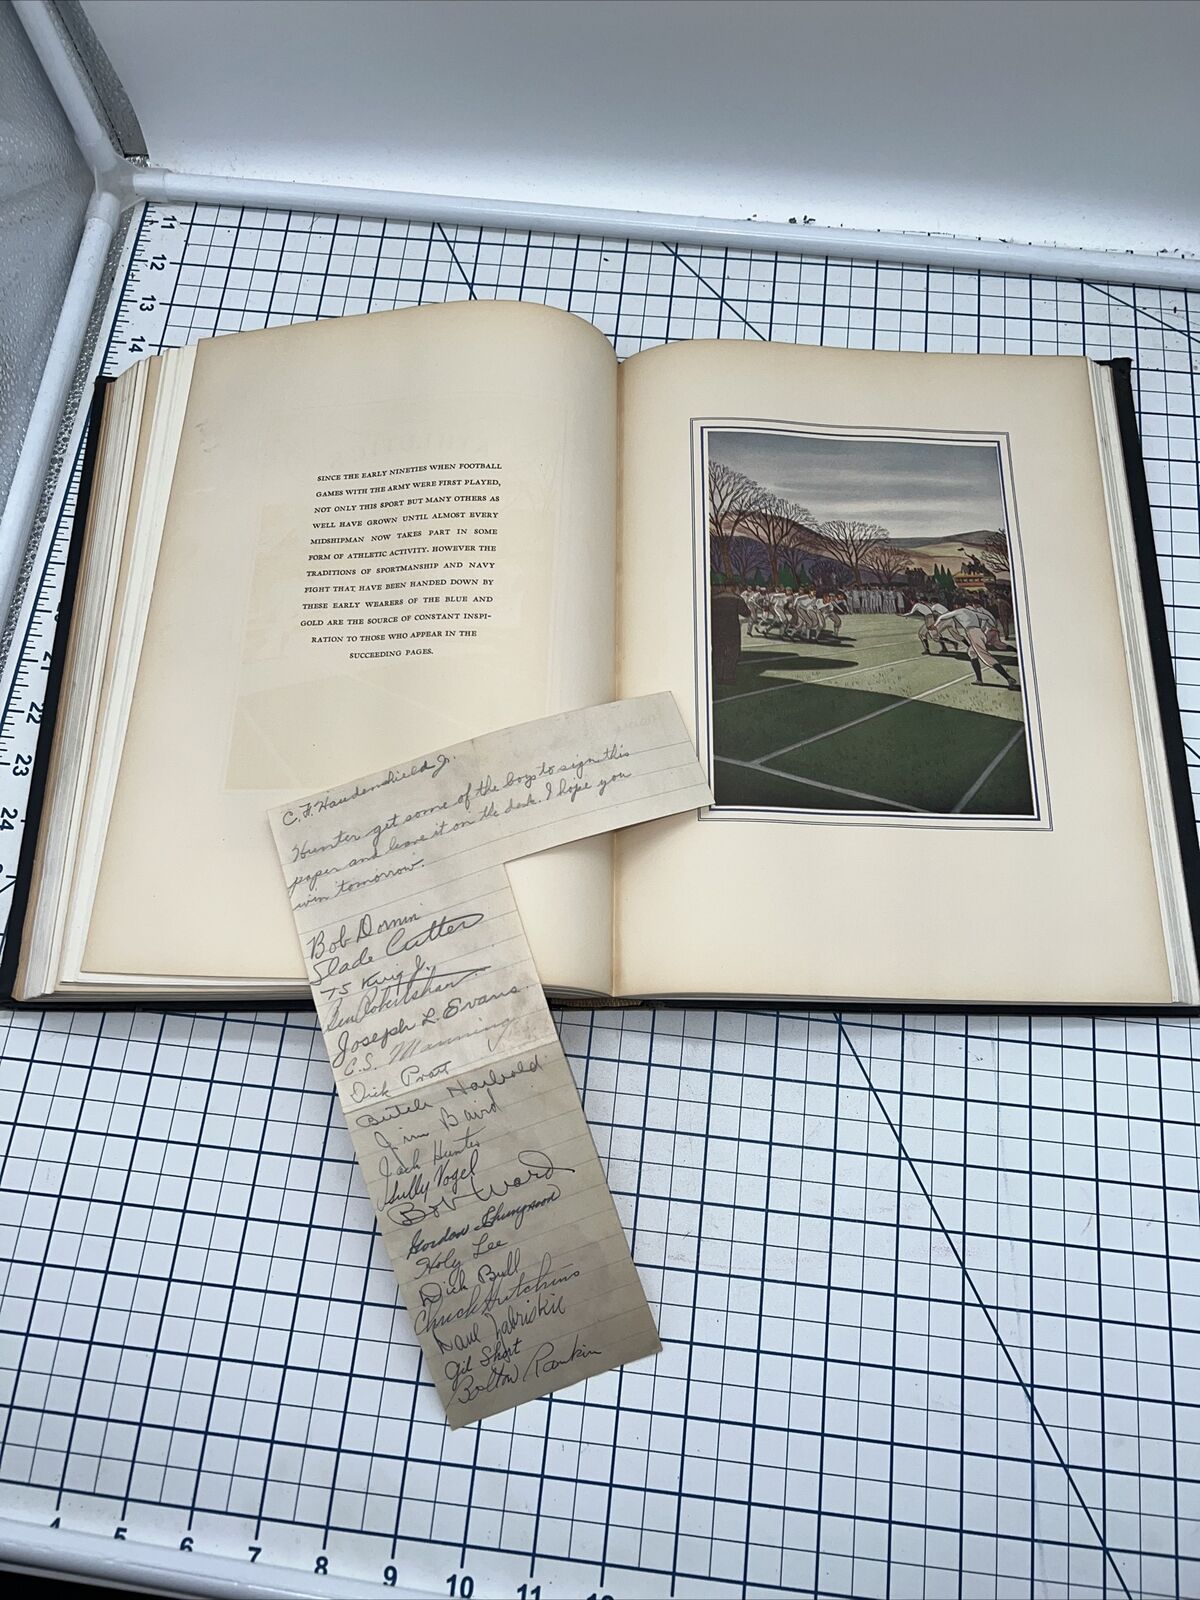 SINCE THE EARLY NINETIES WHEN FOOTBALL
GAMES WITH THE ARMY WERE FIRST PLAYED,
NOT ONLY THIS SPORT BUT MANY OTHERS AS
WELL HAVE GROWN UNTIL ALMOST EVERY
MIDSHIPMAN NOW TAKES PART IN SOME
FORM OF ATHLETIC ACTIVITY. HOWEVER THE
TRADITIONS OF SPORTMANSHIP AND NAVY
FIGHT THAT HAVE BEEN HANDED DOWN BY
THESE EARLY WEARERS OF THE BLUE AND
GOLD ARE THE SOURCE OF CONSTANT INSPI-
RATION TO THOSE WHO APPEAR IN THE
SUCCEEDING PAGES.
C. F. Haudenshield Jr.
Hunter get some of the boys to sign this
paper and leave it on the desk. I hope you
win tomorrow.
Bob Dornin
Slade Cutter
T S King Jr.
Joseph L. Evans.
C.S. Manning
Dick Pratt
Butch Harbold
Jim Baird
Jack Hunter
Sully Vogel
Bob Ward
Gordon
Holy Lee
Dick Bull
Chuck Hutchins
Dave Zabriskie
Gil Short
Bolton Rankin
11
12
13
14
21
22
23
24
4
5
6
7
8
9
10
11
12